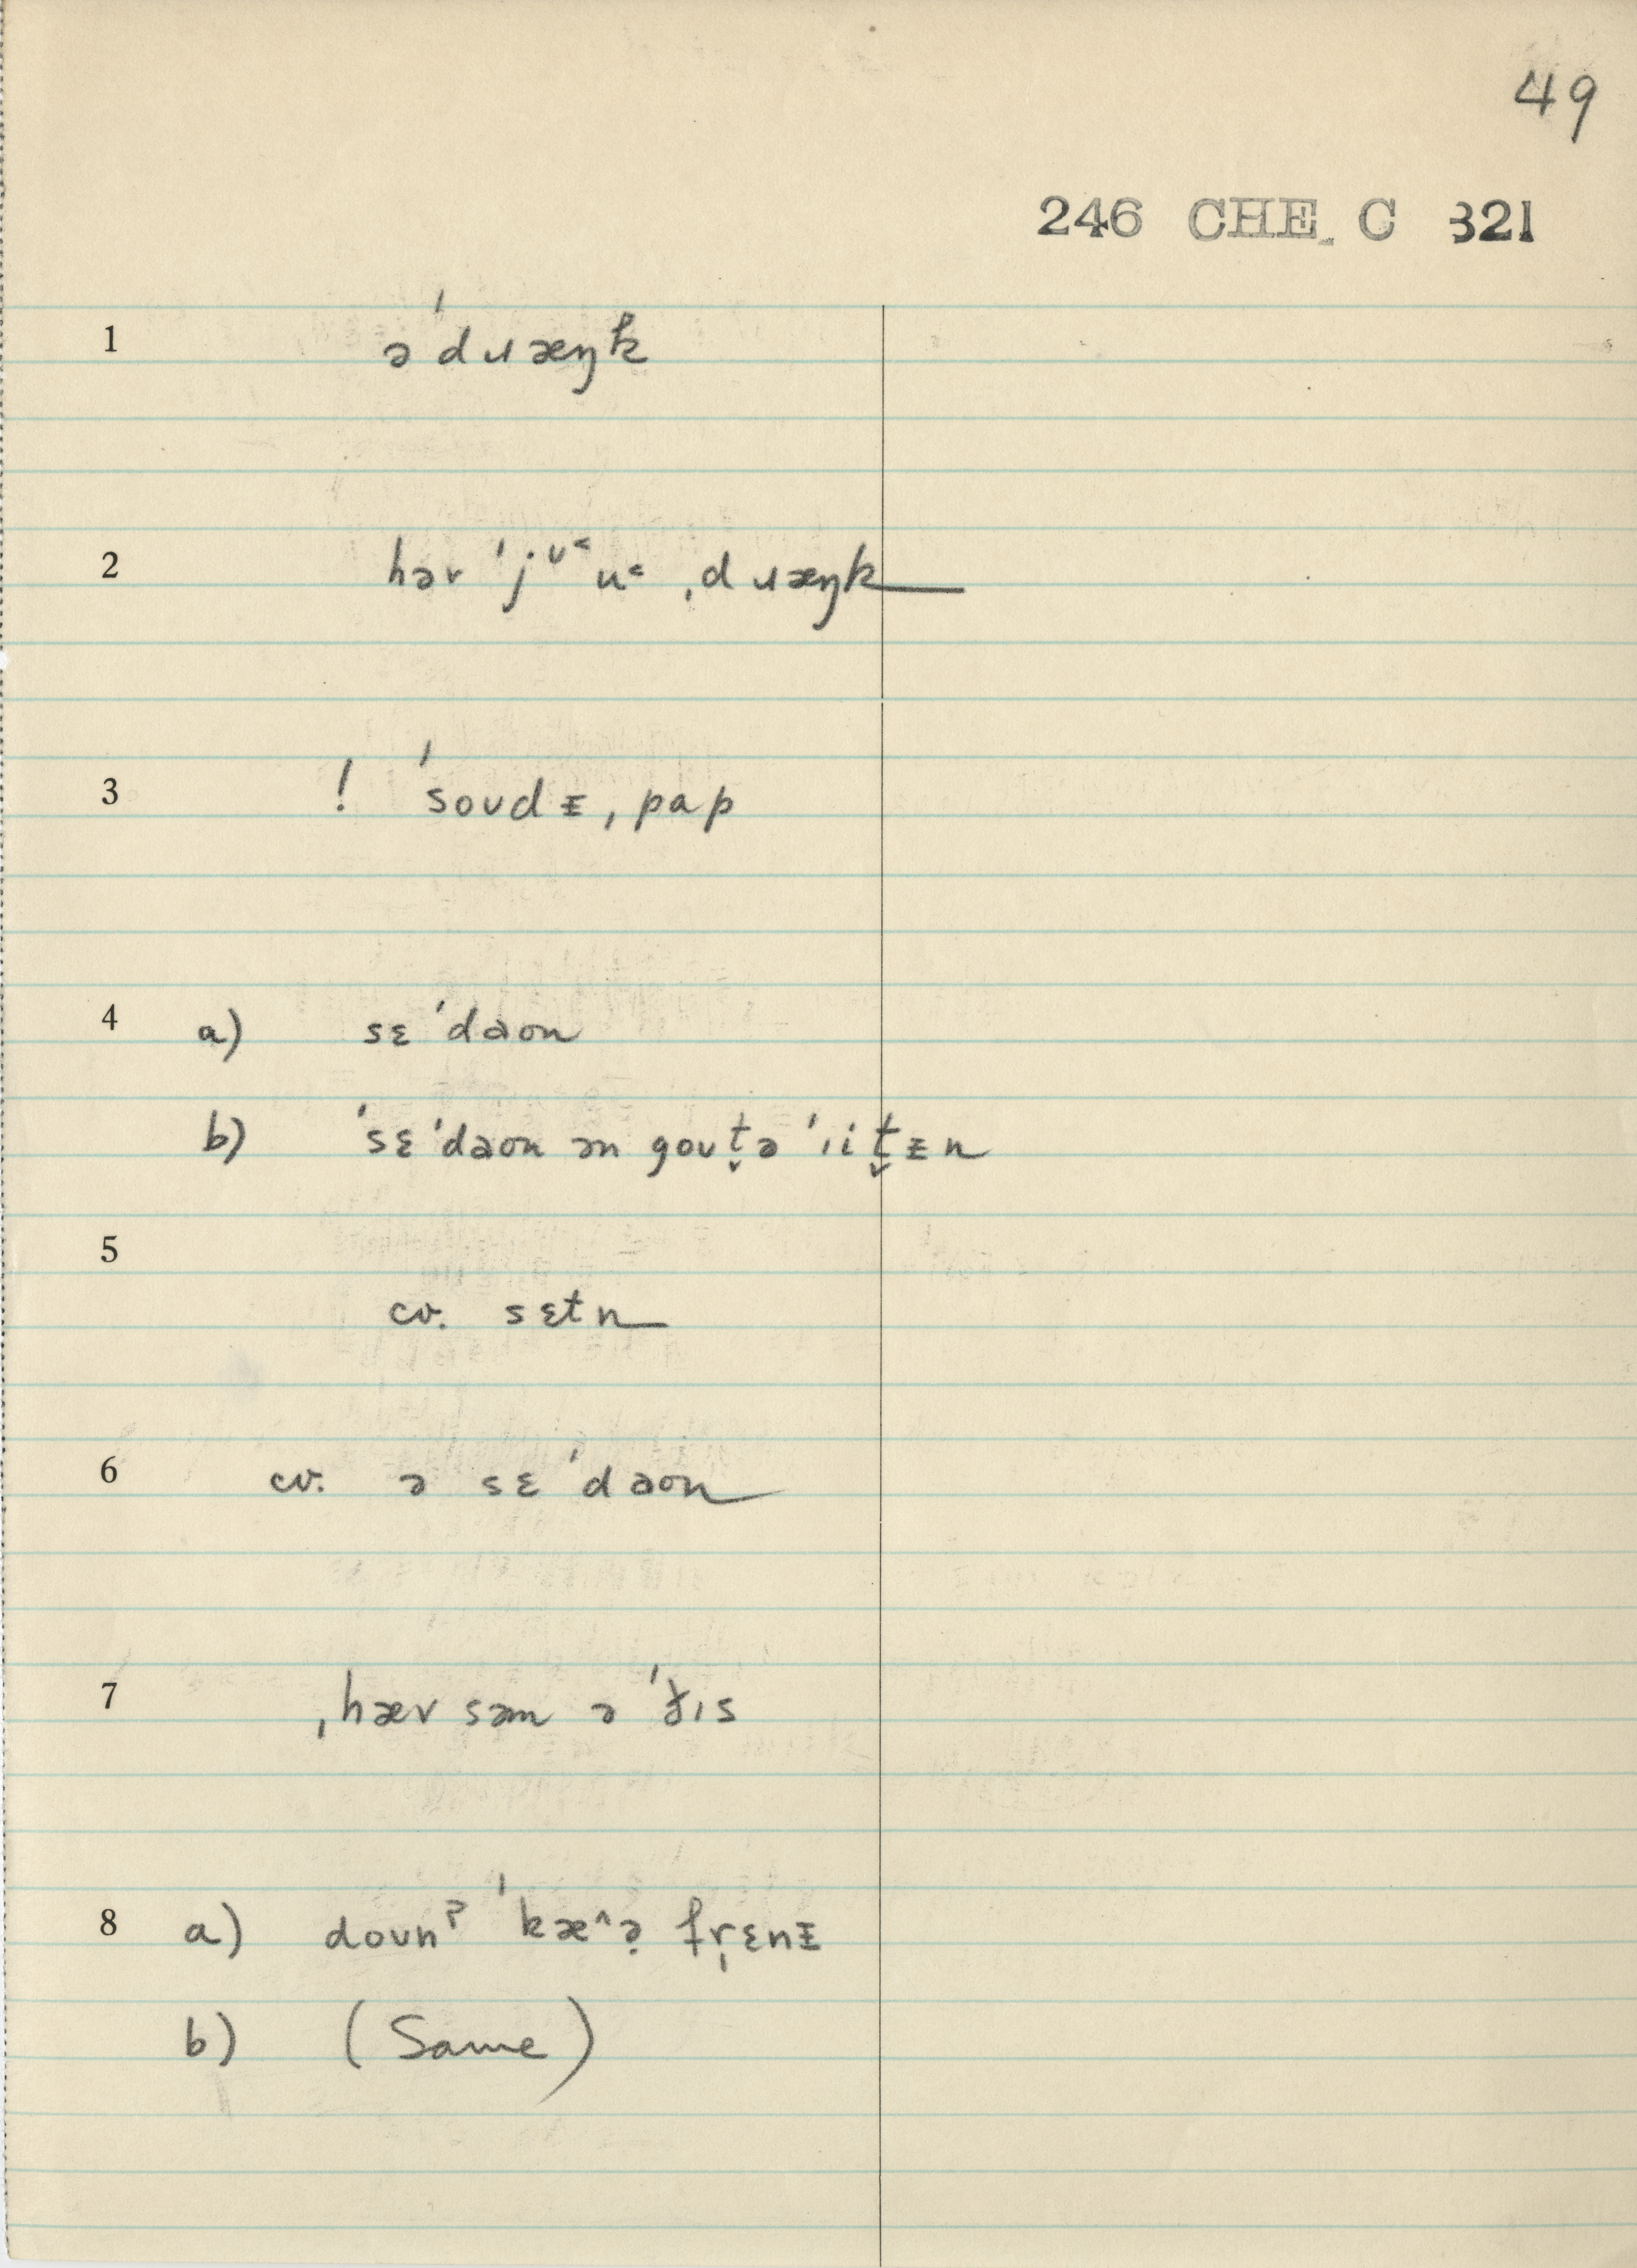 49
246 CHE. C 321
1 ə ˈdɹæŋk
2 hər ˈjᶷ˂u˂ ˌdɹæŋk
3 ! ˈsoʊdᵻ, pap
4 a) sɛ ˈdaon
b) ˈsɛ ˈdaon ən goʊt̬ə ˈɹit̬ᵻn
5
cv. sɛtn
6 cv. ə sɛ ˈdaon
7 ˌhæv səm ə ˈðɪs
8 a) doʊnˀ ˈkæ^ə̣ fr̩ɛnᵻ
b) (Same)